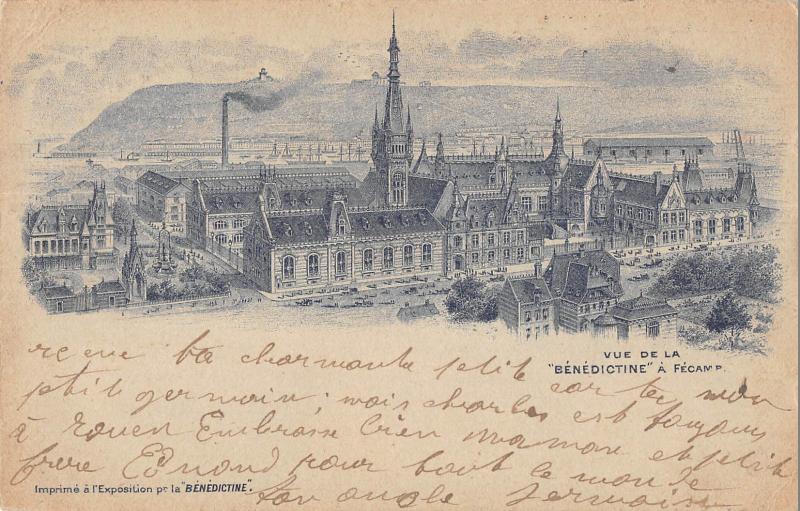 VUE DE LA
"BÉNÉDICTINE" À FÉCAMP.
reçue ta charmante petite carte mon
petit germain; mais charles est toujours
à Rouen Embrasse bien maman et petit
frère Edmond pour tout le monde
Imprimé à l'Exposition pr la "BÉNÉDICTINE".
ton oncle Germain